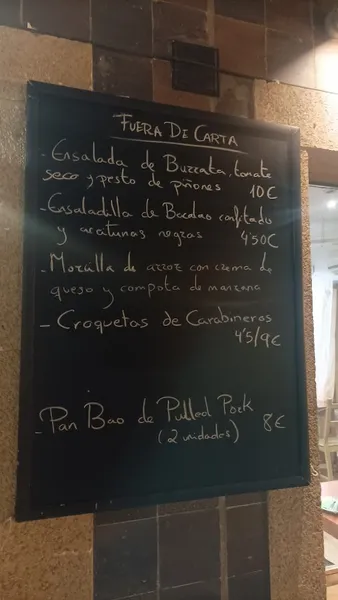 FUERA DE CARTA
- Ensalada de Burrata, tomate
seco y pesto de piñones 10€
- Ensaladilla de Bacalao confitado
y aceitunas negras 4'50€
- Morcilla de arroz con crema de
queso y compota de manzana
- Croquetas de Carabineros
4'5/9€
- Pan Bao de Pulled Pork
(2 unidades) 8€